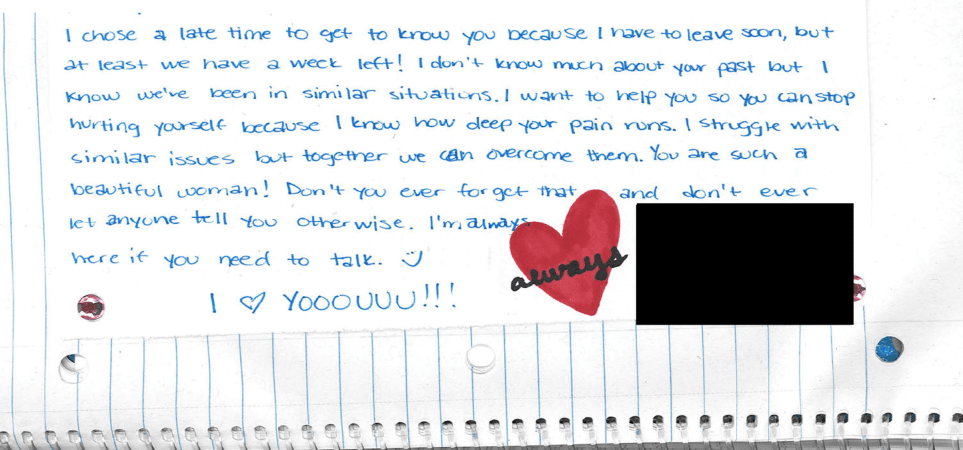 I chose a late time to get to know you because I have to leave soon, but
at least we have a week left! I don't know much about your past but I
know we've been in similar situations. I want to help you so you can stop
hurting yourself because I know how deep your pain runs. I struggle with
similar issues but together we can overcome them. You are such a
beautiful woman! Don't you ever forget that and don't ever
let anyone tell you otherwise. I'm always
here if you need to talk. :)
always
I ♡ YOOOUUU!!!